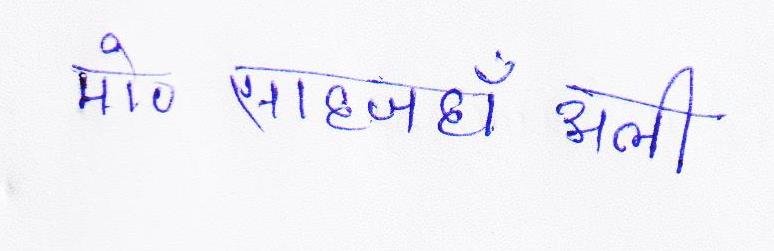 मो० साहजहाँ अली